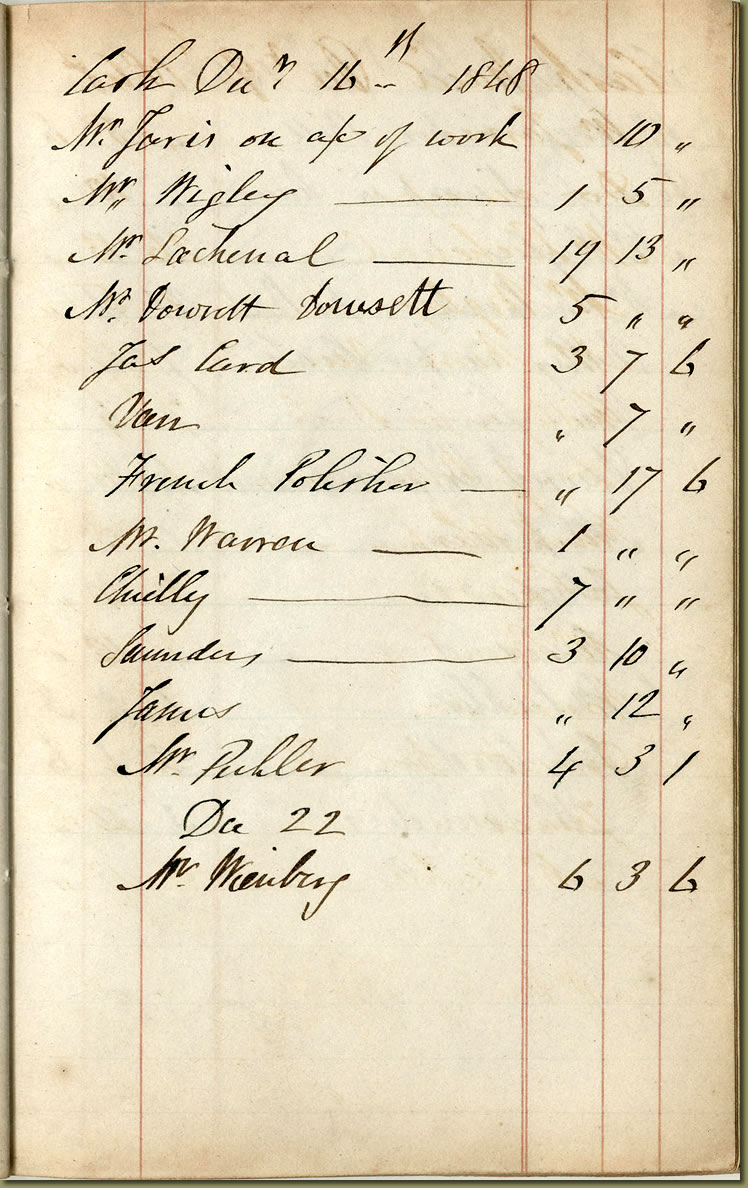 Cash Decr 16th 1848
Mr. Jaris on a/c of work 10 "
Mr Wigley 1 5 "
Mr Lachenal 19 13 "
Mr. Dowsett Dowsett 5 " "
Jas Card 3 7 6
Van " 7 "
French Polisher " 17 6
Mr. Warren 1 " "
Chidley 7 " "
Saunders 3 10 "
James " 12 "
Mr. 4 3 1
Dec 22
Mr Wienberg 6 3 6